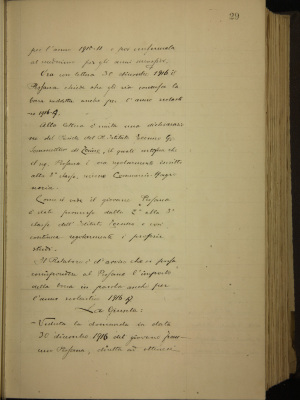 29
per l'anno 1910-11 e poi confermata
al medesimo per gli anni successivi.
Ora con lettera 30 dicembre 1916 il
Plesana chiede che gli sia concessa la
borsa suddetta anche per l'anno scolasti-
co 1916-17.
Alla lettera è unita una dichiarazio-
ne del Preside del R. Istituto Tecnico
di Udine, il quale certifica che
il sig. Plesana è ora regolarmente iscritto
alla 3ª classe, sezione Commercio-Ragio-
neria.
Come si vede il giovane Plesana
è stato promosso dalla 2ª alla 3ª
classe dell'Istituto Tecnico e ora
continua regolarmente i proprii
studi.
Il Relatore è d'avviso che si possa
corrispondere al Plesana l'importo
della borsa in parola anche per
l'anno scolastico 1916-17.
La Giunta:
- Veduta la domanda in data
30 dicembre 1916 del giovane
Plesana, diretta ad ottenere